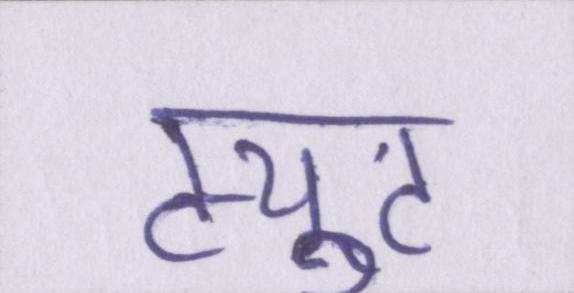 ट्यूट